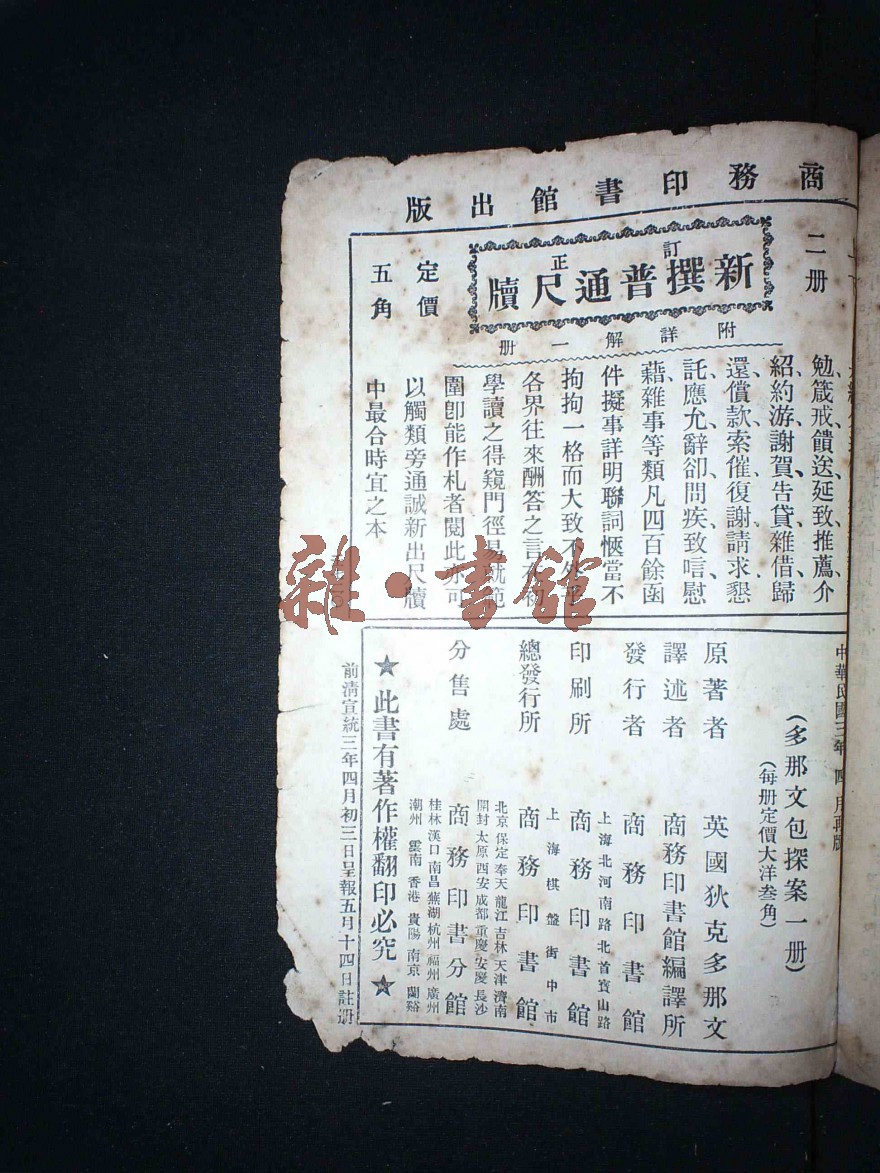 商務印書館出版
二册
訂正
新撰普通尺牘
附詳解一册
定價
五角
勉箴戒饋送延致推薦介
紹約游謝賀告貸雜借歸
還償款索催復謝請求懇
託應允辭卻問疾致唁慰
藉雜事等類凡四百餘函
件擬事詳明聯詞愜當不
拘拘一格而大致不外乎
各界往來酬答之言初
學讀之得窺門徑易就範
圍卽能作札者閱此亦可
以觸類旁通誠新出尺牘
中最合時宜之本
雜·書館
中華民國三年四月再版
(多那文包探案一册)
(每册定價大洋叁角)
原著者 英國狄克多那文
譯述者 商務印書館編譯所
發行者 商務印書館
上海北河南路北首寶山路
印刷所 商務印書館
上海棋盤街中市
總發行所 商務印書館
北京保定奉天龍江吉林天津濟南
開封太原西安成都重慶安慶長沙
分售處 商務印書分館
桂林漢口南昌蕪湖杭州福州廣州
潮州雲南香港貴陽南京蘭谿
★此書有著作權翻印必究★
前清宣統三年四月初三日呈報五月十四日註册